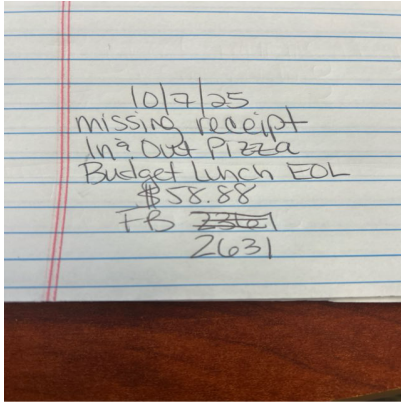 10/7/25
missing receipt
In & Out Pizza
Budget Lunch EOL
$58.88
FB
2631